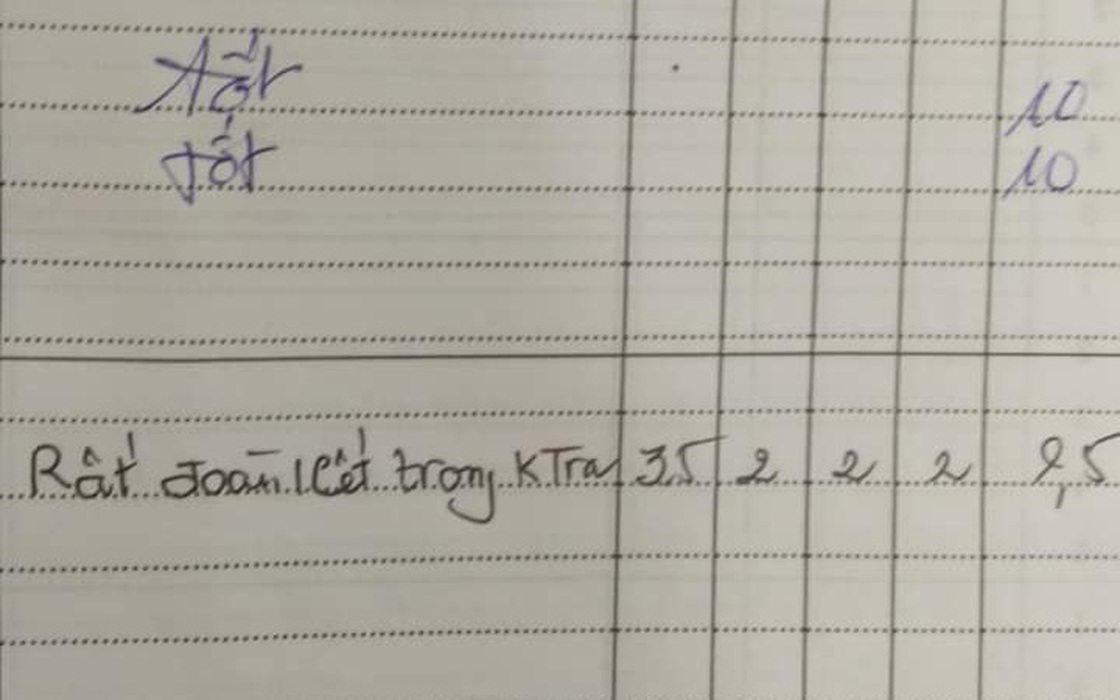 Tốt 10
Tốt 10
Rất đoàn kết trong KTra 3.5 2 2 2 9,5